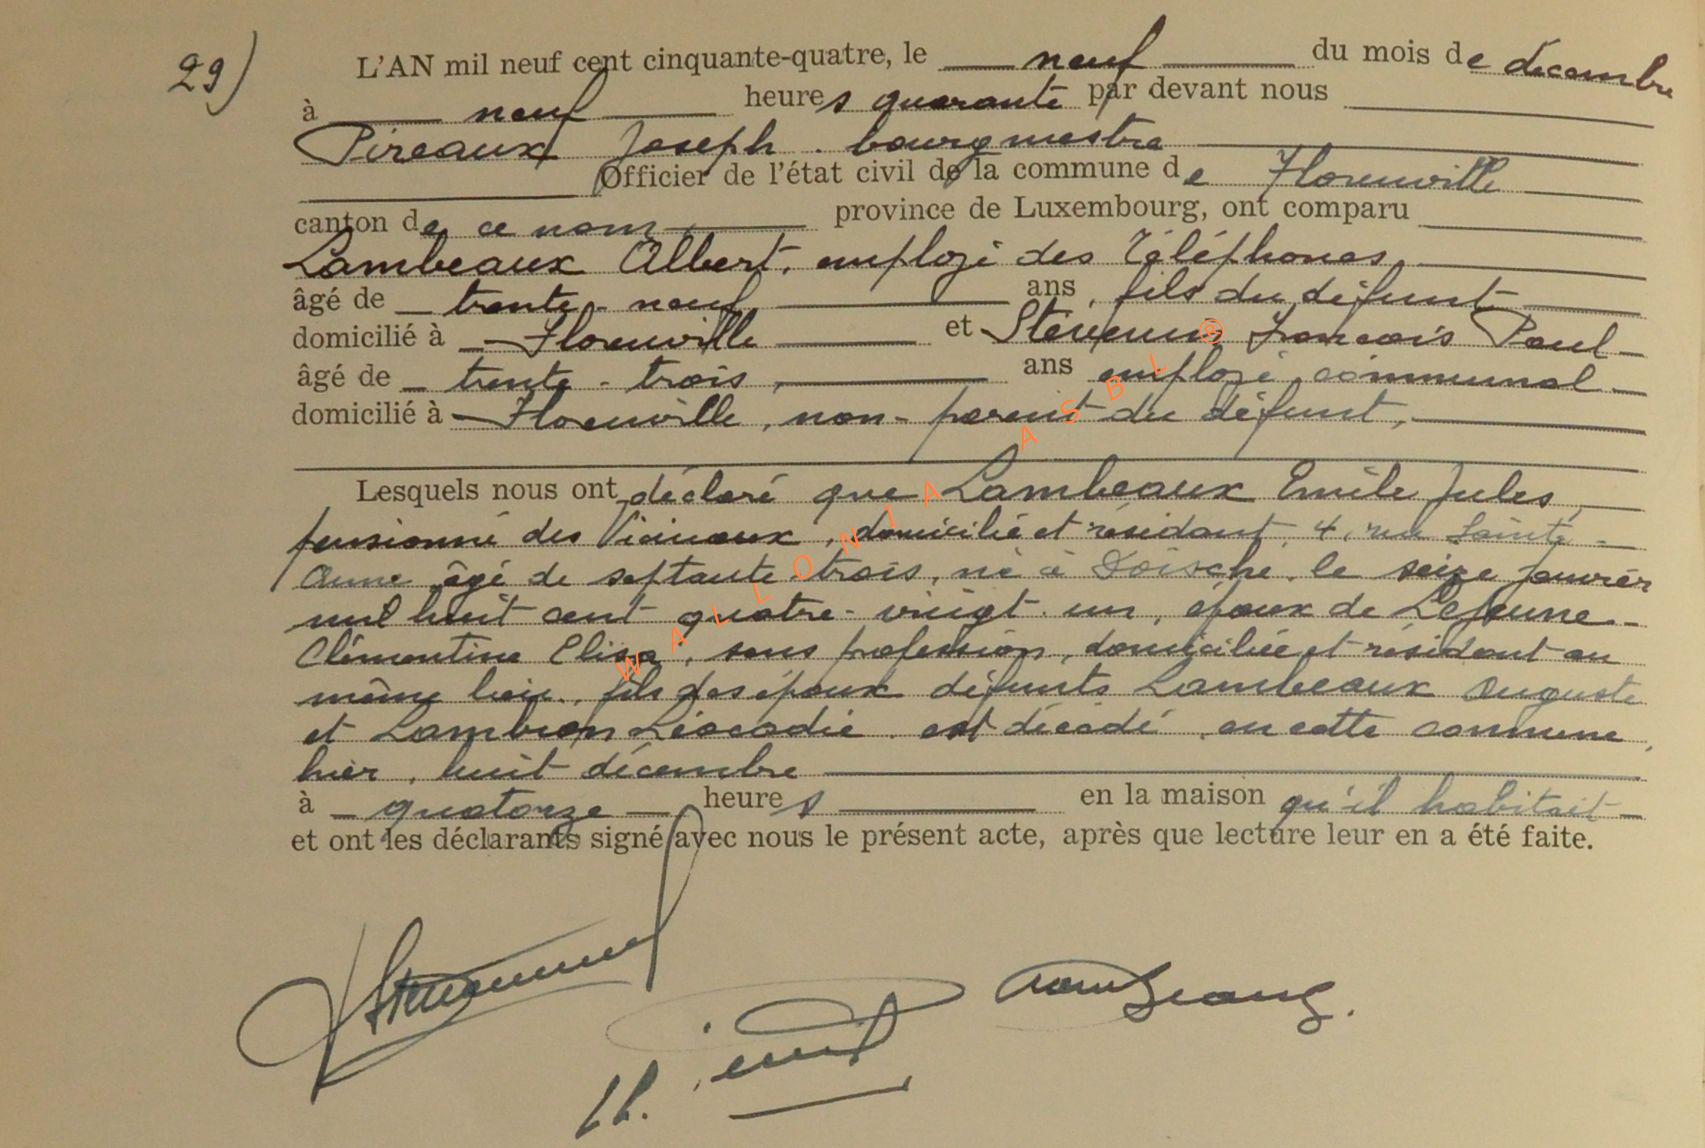 29)
L'AN mil neuf cent cinquante-quatre, le neuf du mois de décembre
à neuf heures quarante par devant nous
Pireaux Joseph. bourgmestre
Officier de l'état civil de la commune de Florenville
canton de ce nom province de Luxembourg, ont comparu
Lambeaux Albert, employé des Téléphones,
âgé de trente-neuf ans, fils du défunt
domicilié à Florenville et François Paul
âgé de trente-trois, ans employé communal
domicilié à Florenville, non-parent du défunt,
Lesquels nous ont déclaré que Lambeaux Emile Jules,
pensionné des Vicinaux, domicilié et résidant, 4, rue Sainte-
Anne âgé de septante-trois, né à Doische, le seize janvier
mil huit cent quatre-vingt-un, époux de Lejeune
Clémentine Elisa, sans profession, domiciliée et résidant au
même lieu, fils des époux défunts Lambeaux Auguste
et Lambion Léocadie est décédé en cette commune,
hier, huit décembre
à quatorze heures en la maison qu'il habitait
et ont les déclarants signé avec nous le présent acte, après que lecture leur en a été faite.
WALLONIA ASBL ®